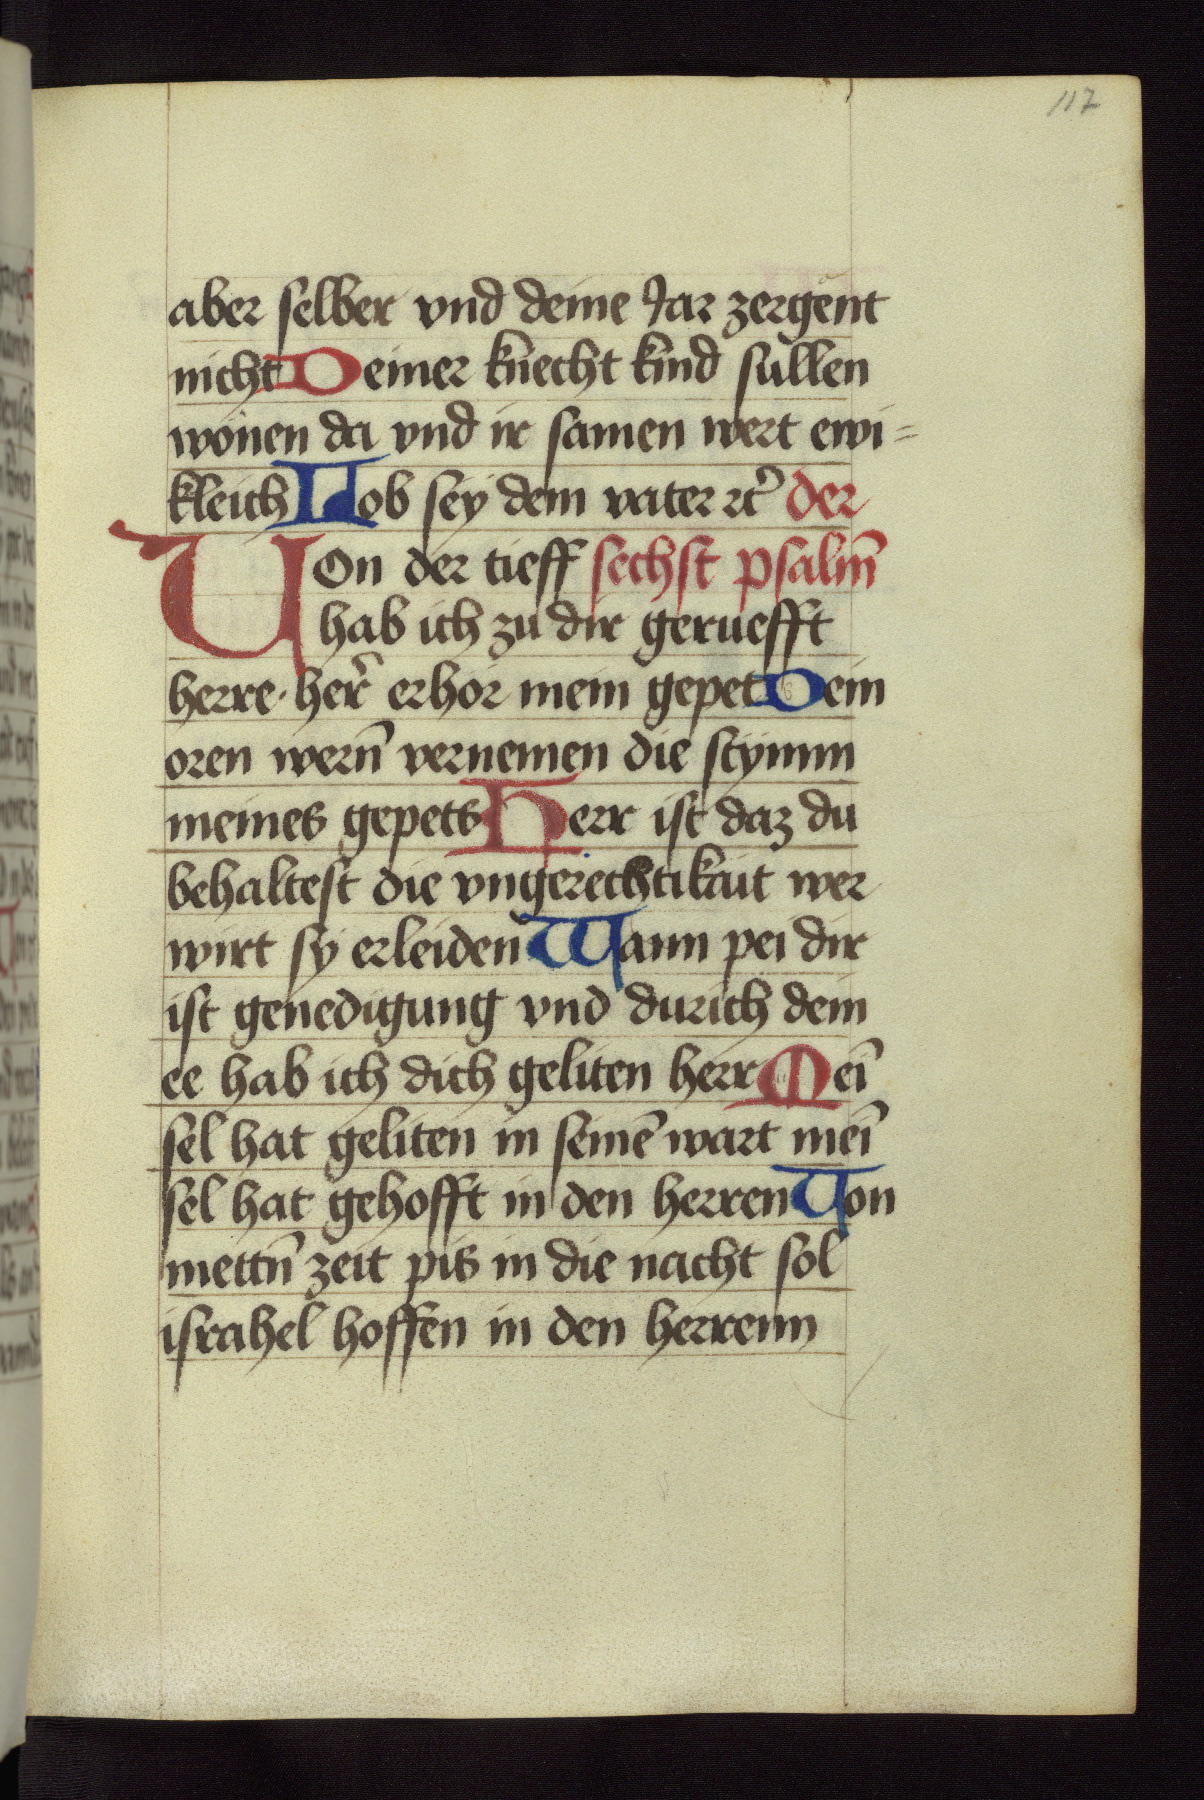 117
aber selber vnd deine Jar zergent
nicht Deiner knecht kind sullen
wonen da vnd ir samen wert ewi=
kleich Lob sey dem vater ꝛcͣ der
Von der tieff sechst psalm̄
hab ich zu dir geruefft
herre · her̄ erhor mein gepet Dein
oren wern̄ vernemen die stymm
meines gepets Herr ist daz du
behaltest die vngerechtikait wer
wirt sy erleiden Wann pei dir
ist genedigung vnd durich dein
ee hab ich dich geliten herr Mei̅
sel hat geliten in seine̅ wart mei̅
sel hat gehofft in den herren Von
mettn̄ zeit pis in die nacht sol
israhel hoffen in den herrenn